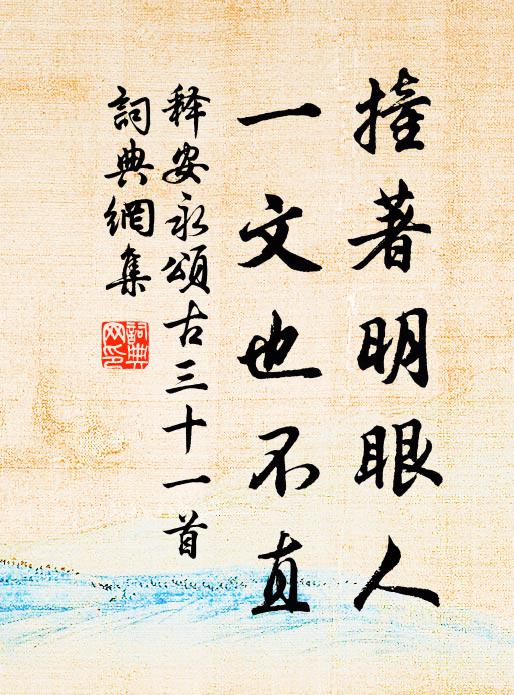 撞著明眼人
一文也不直
释安永頌古三十一首
詞典網集
詞典
网印